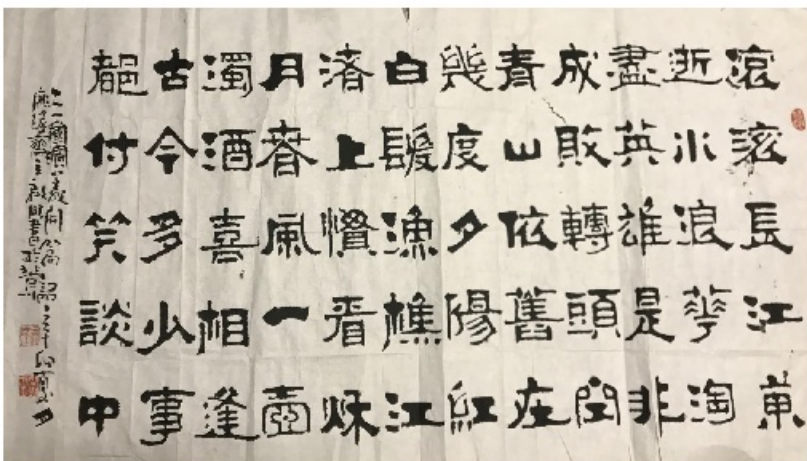 滚滚長江東
逝水浪花淘
盡英雄是非
成敗轉頭空
青山依舊在
幾度夕陽紅
白髮漁樵江
渚上慣看秋
月春風一壺
濁酒喜相逢
古今多少事
都付笑談中
三國演義開篇詞